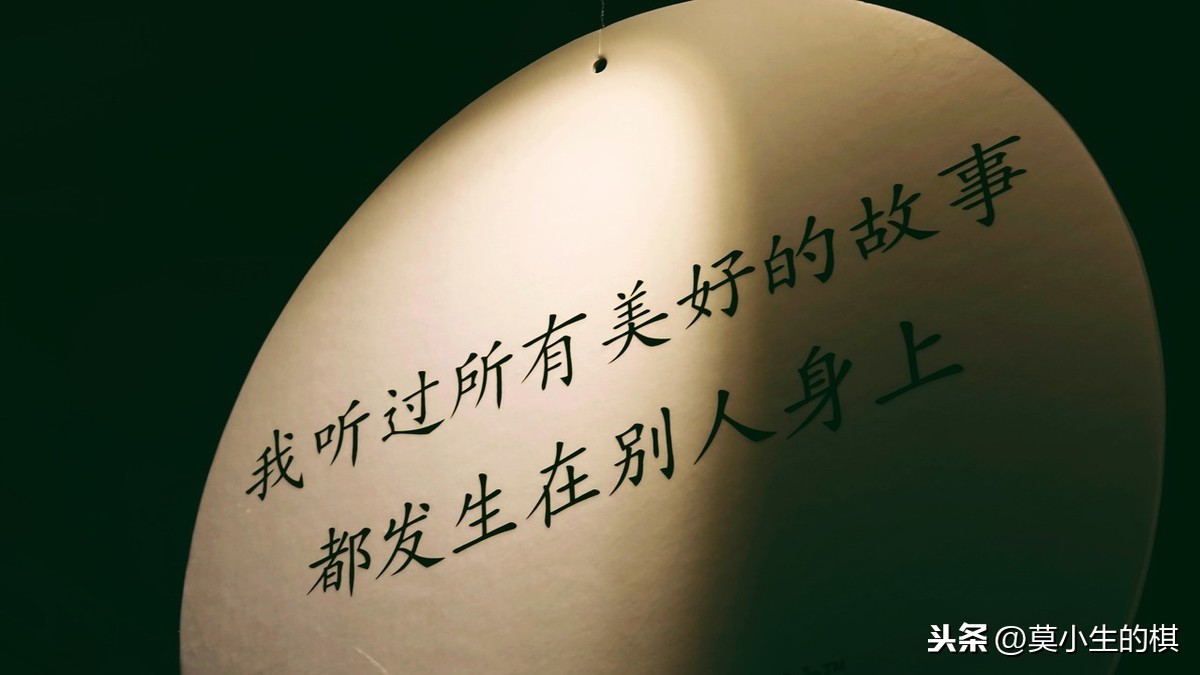 我听过所有美好的故事
都发生在别人身上
头条 @莫小生的棋